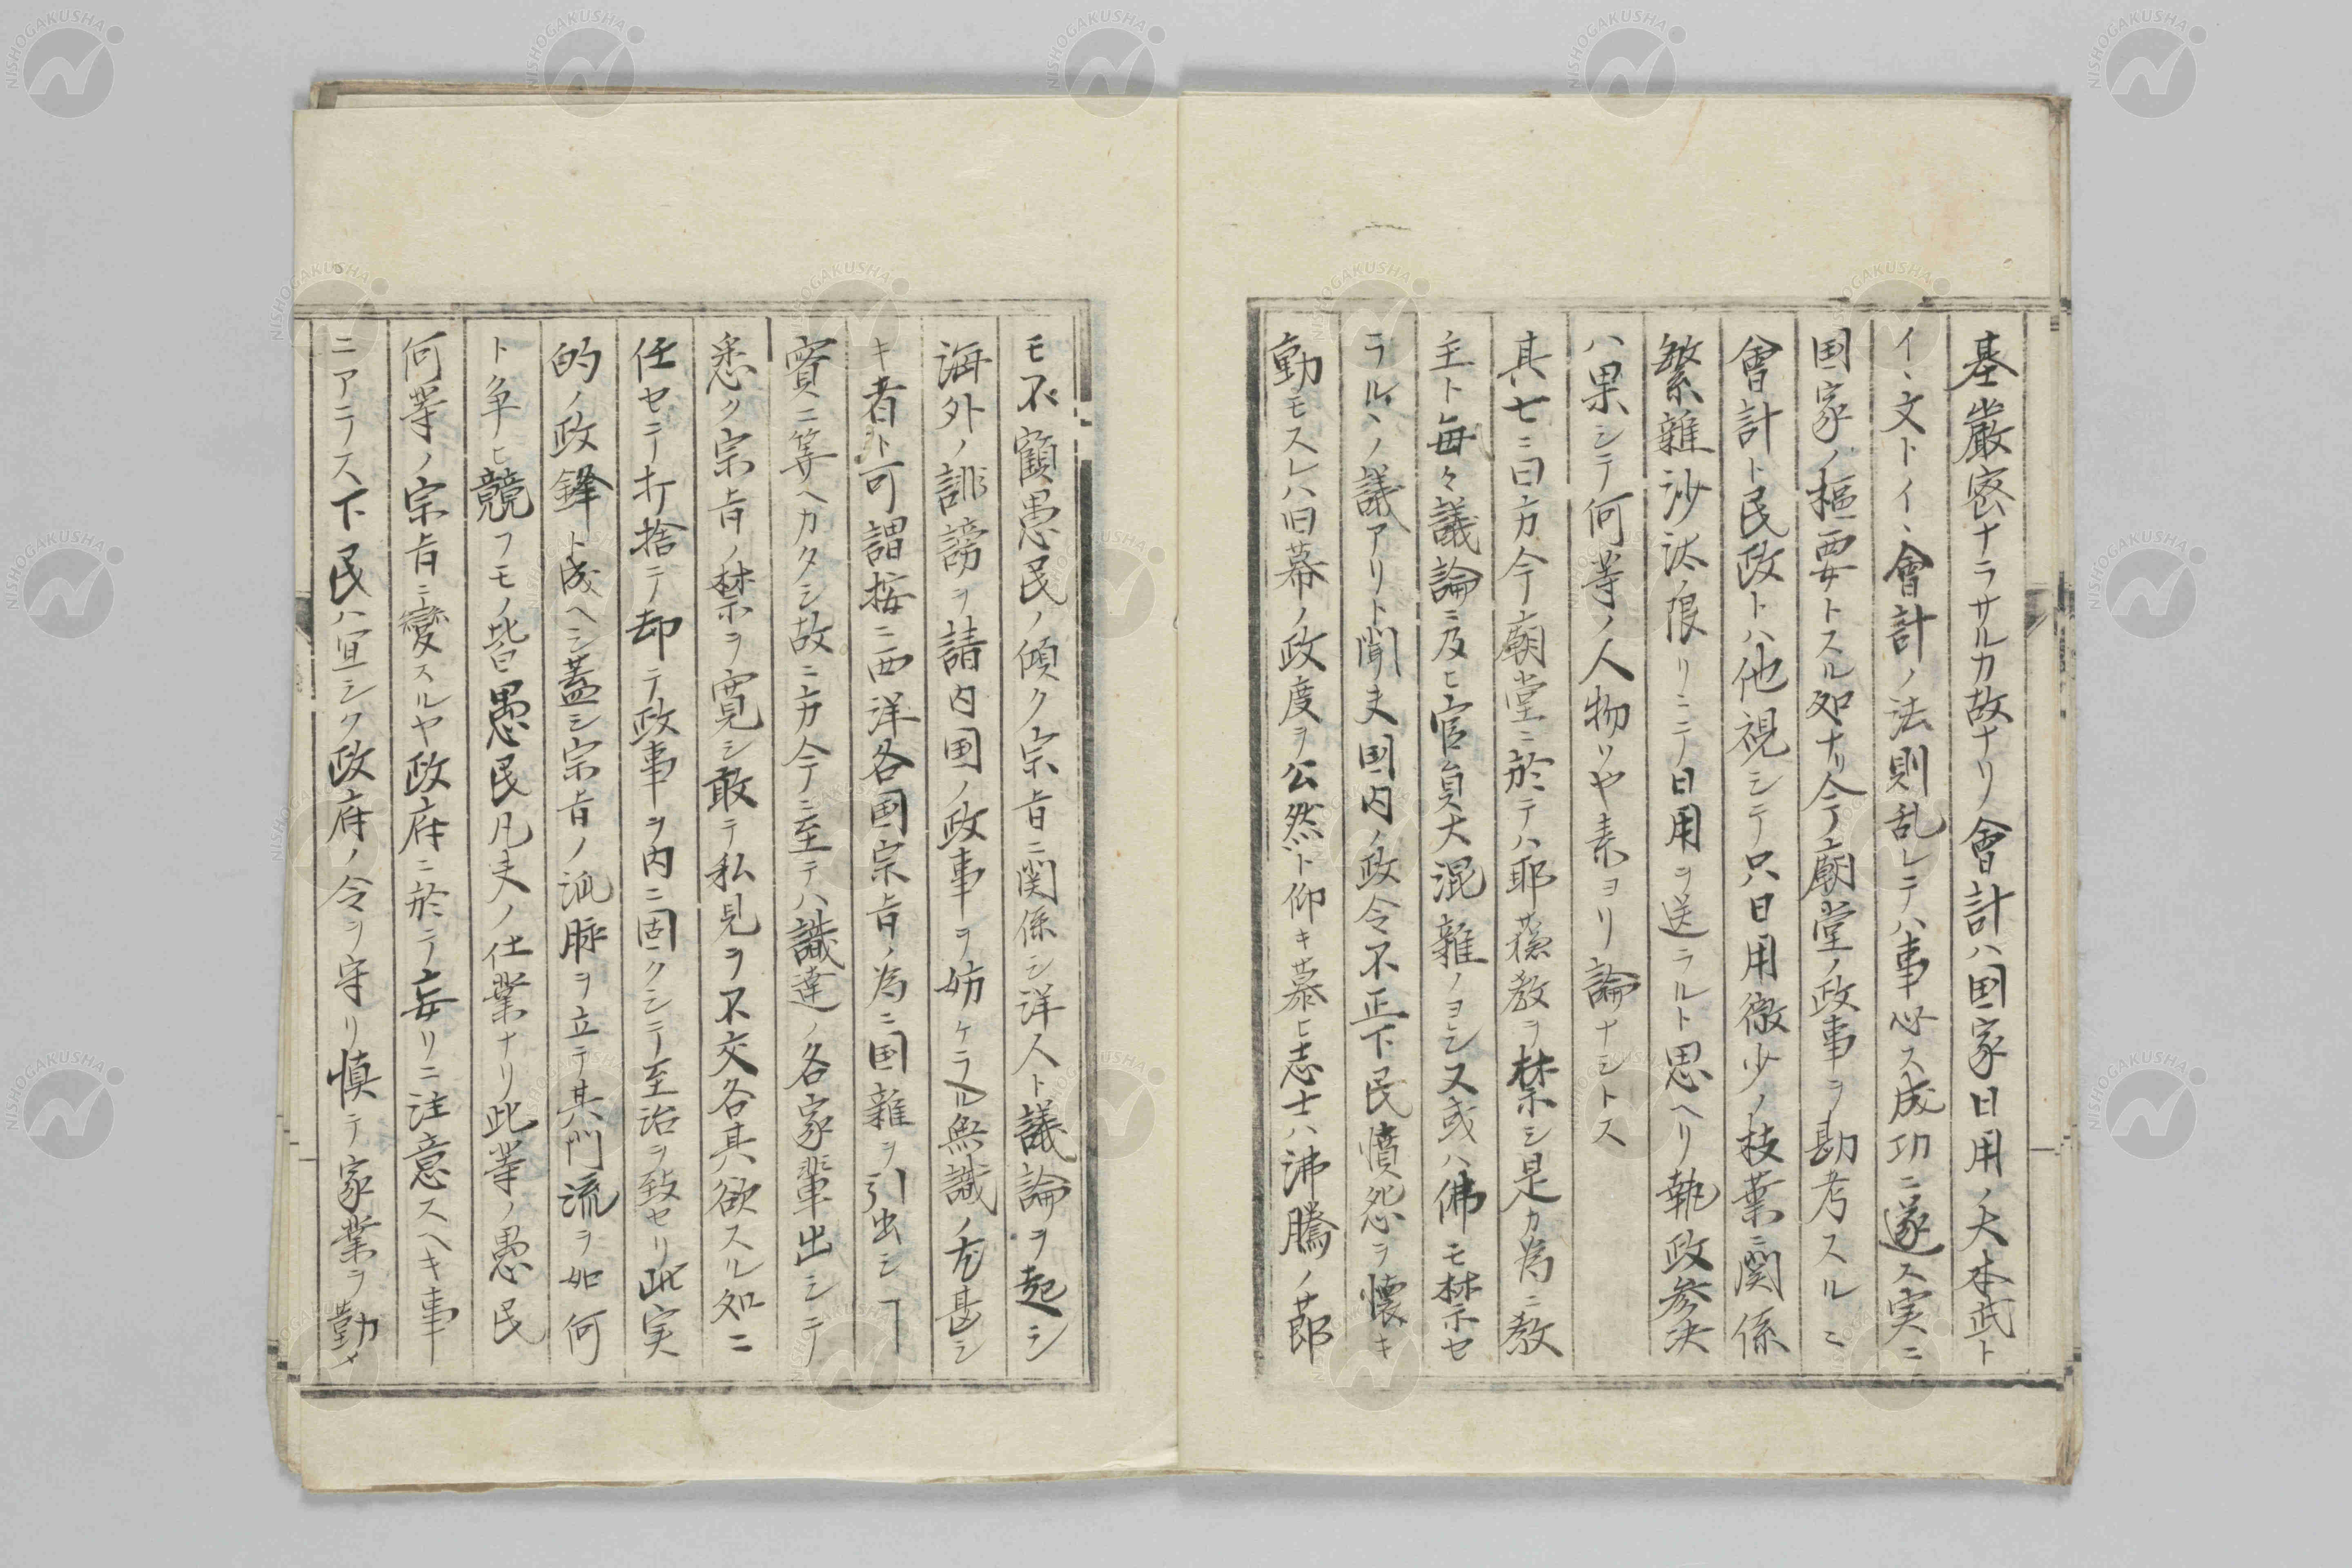 基嚴密ナラサルカ故ナリ會計ハ国家日用ノ大本武ト
イヽ文トイヽ會計ノ法則乱レテハ事必ス成功ニ遂ス実ニ
国家ノ枢要トスル処ナリ今廟堂ノ政事ヲ勘考スルニ
會計ト民政トハ他視シテ只日用微少ノ枝葉ニ関係
繁雜沙汰限リニテ日用ヲ送ラルト思ヘリ執政参决
ハ果シテ何等ノ人物リヤ素ヨリ論ナシトス
其七ニ曰方今廟堂ニ於テハ耶蘓教ヲ禁シ是カ為ニ教
主ト毎々議論ニ及ヒ官員大混雜ノヨシ又或ハ佛モ禁セ
ラルヽノ議アリト聞夫国内ノ政令不正下民憤怨ヲ懐キ
動モスレハ旧幕ノ政度ヲ公然ト仰キ慕ヒ志士ハ沸騰ノ莭
モ不顧愚民ノ傾ク宗旨ニ関係シ洋人ト議論ヲ起シ
海外ノ誹謗ヲ請内国ノ政事ヲ妨ケラル無識ノ尤甚シ
キ者ト可謂按ニ西洋各国宗旨ノ為ニ国雜ヲ引出シヿ
實ニ筭ヘカタシ故ニ方今ニ至テハ識達ノ各家輩出シテ
悉ク宗旨ノ禁ヲ寛シ敢テ私見ヲ不交各其欲スル処ニ
任セテ打捨テ却テ政事ヲ内ニ固クシテ至治ヲ致セリ此実
的ノ政鋒ト成ヘシ蓋シ宗旨ノ派脈ヲ立テ其門流ヲ如何
ト争ヒ競フモノ皆愚民凡夫ノ仕業ナリ此等ノ愚民
何等ノ宗旨ニ變スルヤ政府ニ於テ妄リニ注意スヘキ事
ニアラス下民ハ宜シク政府ノ令ヲ守リ慎テ家業ヲ勤メ
NISHOGAKUSHA